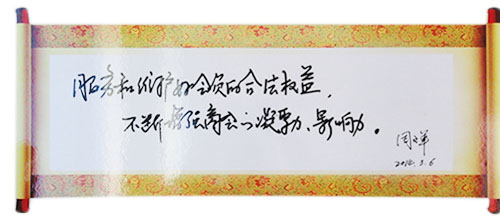 服务和维护好会员的合法权益，
不断增强商会的凝聚力、影响力。
周
2014.3.6